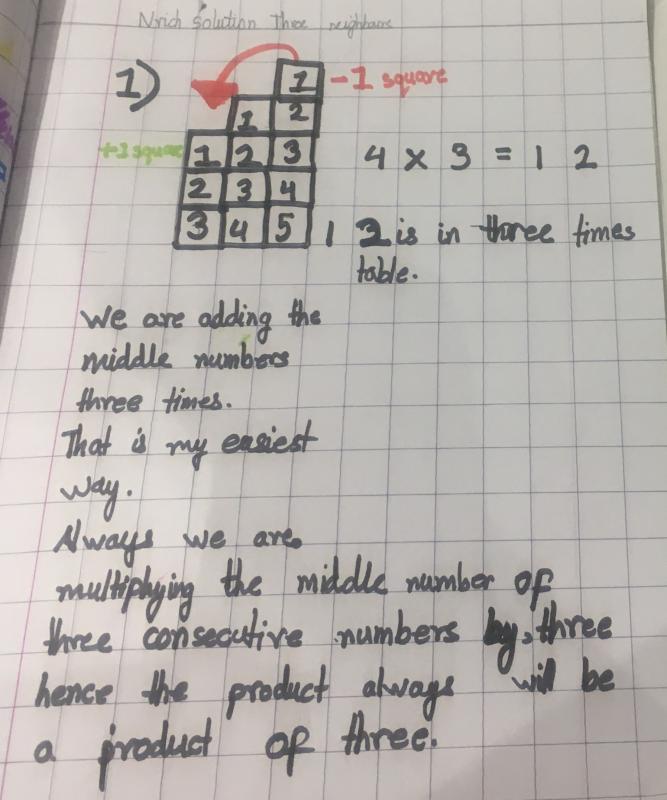 Nrich Solution Three neighbours
1)
1 -1 square
1 2
+1 square 1 2 3 4 x 3 = 1 2
2 3 4
3 4 5 1 2 is in three times
table.
We are adding the
middle numbers
three times.
That is my easiest
way.
Always we are
multiphying the middle number of
three consecutive numbers by, three
hence the product always will be
a product of three.